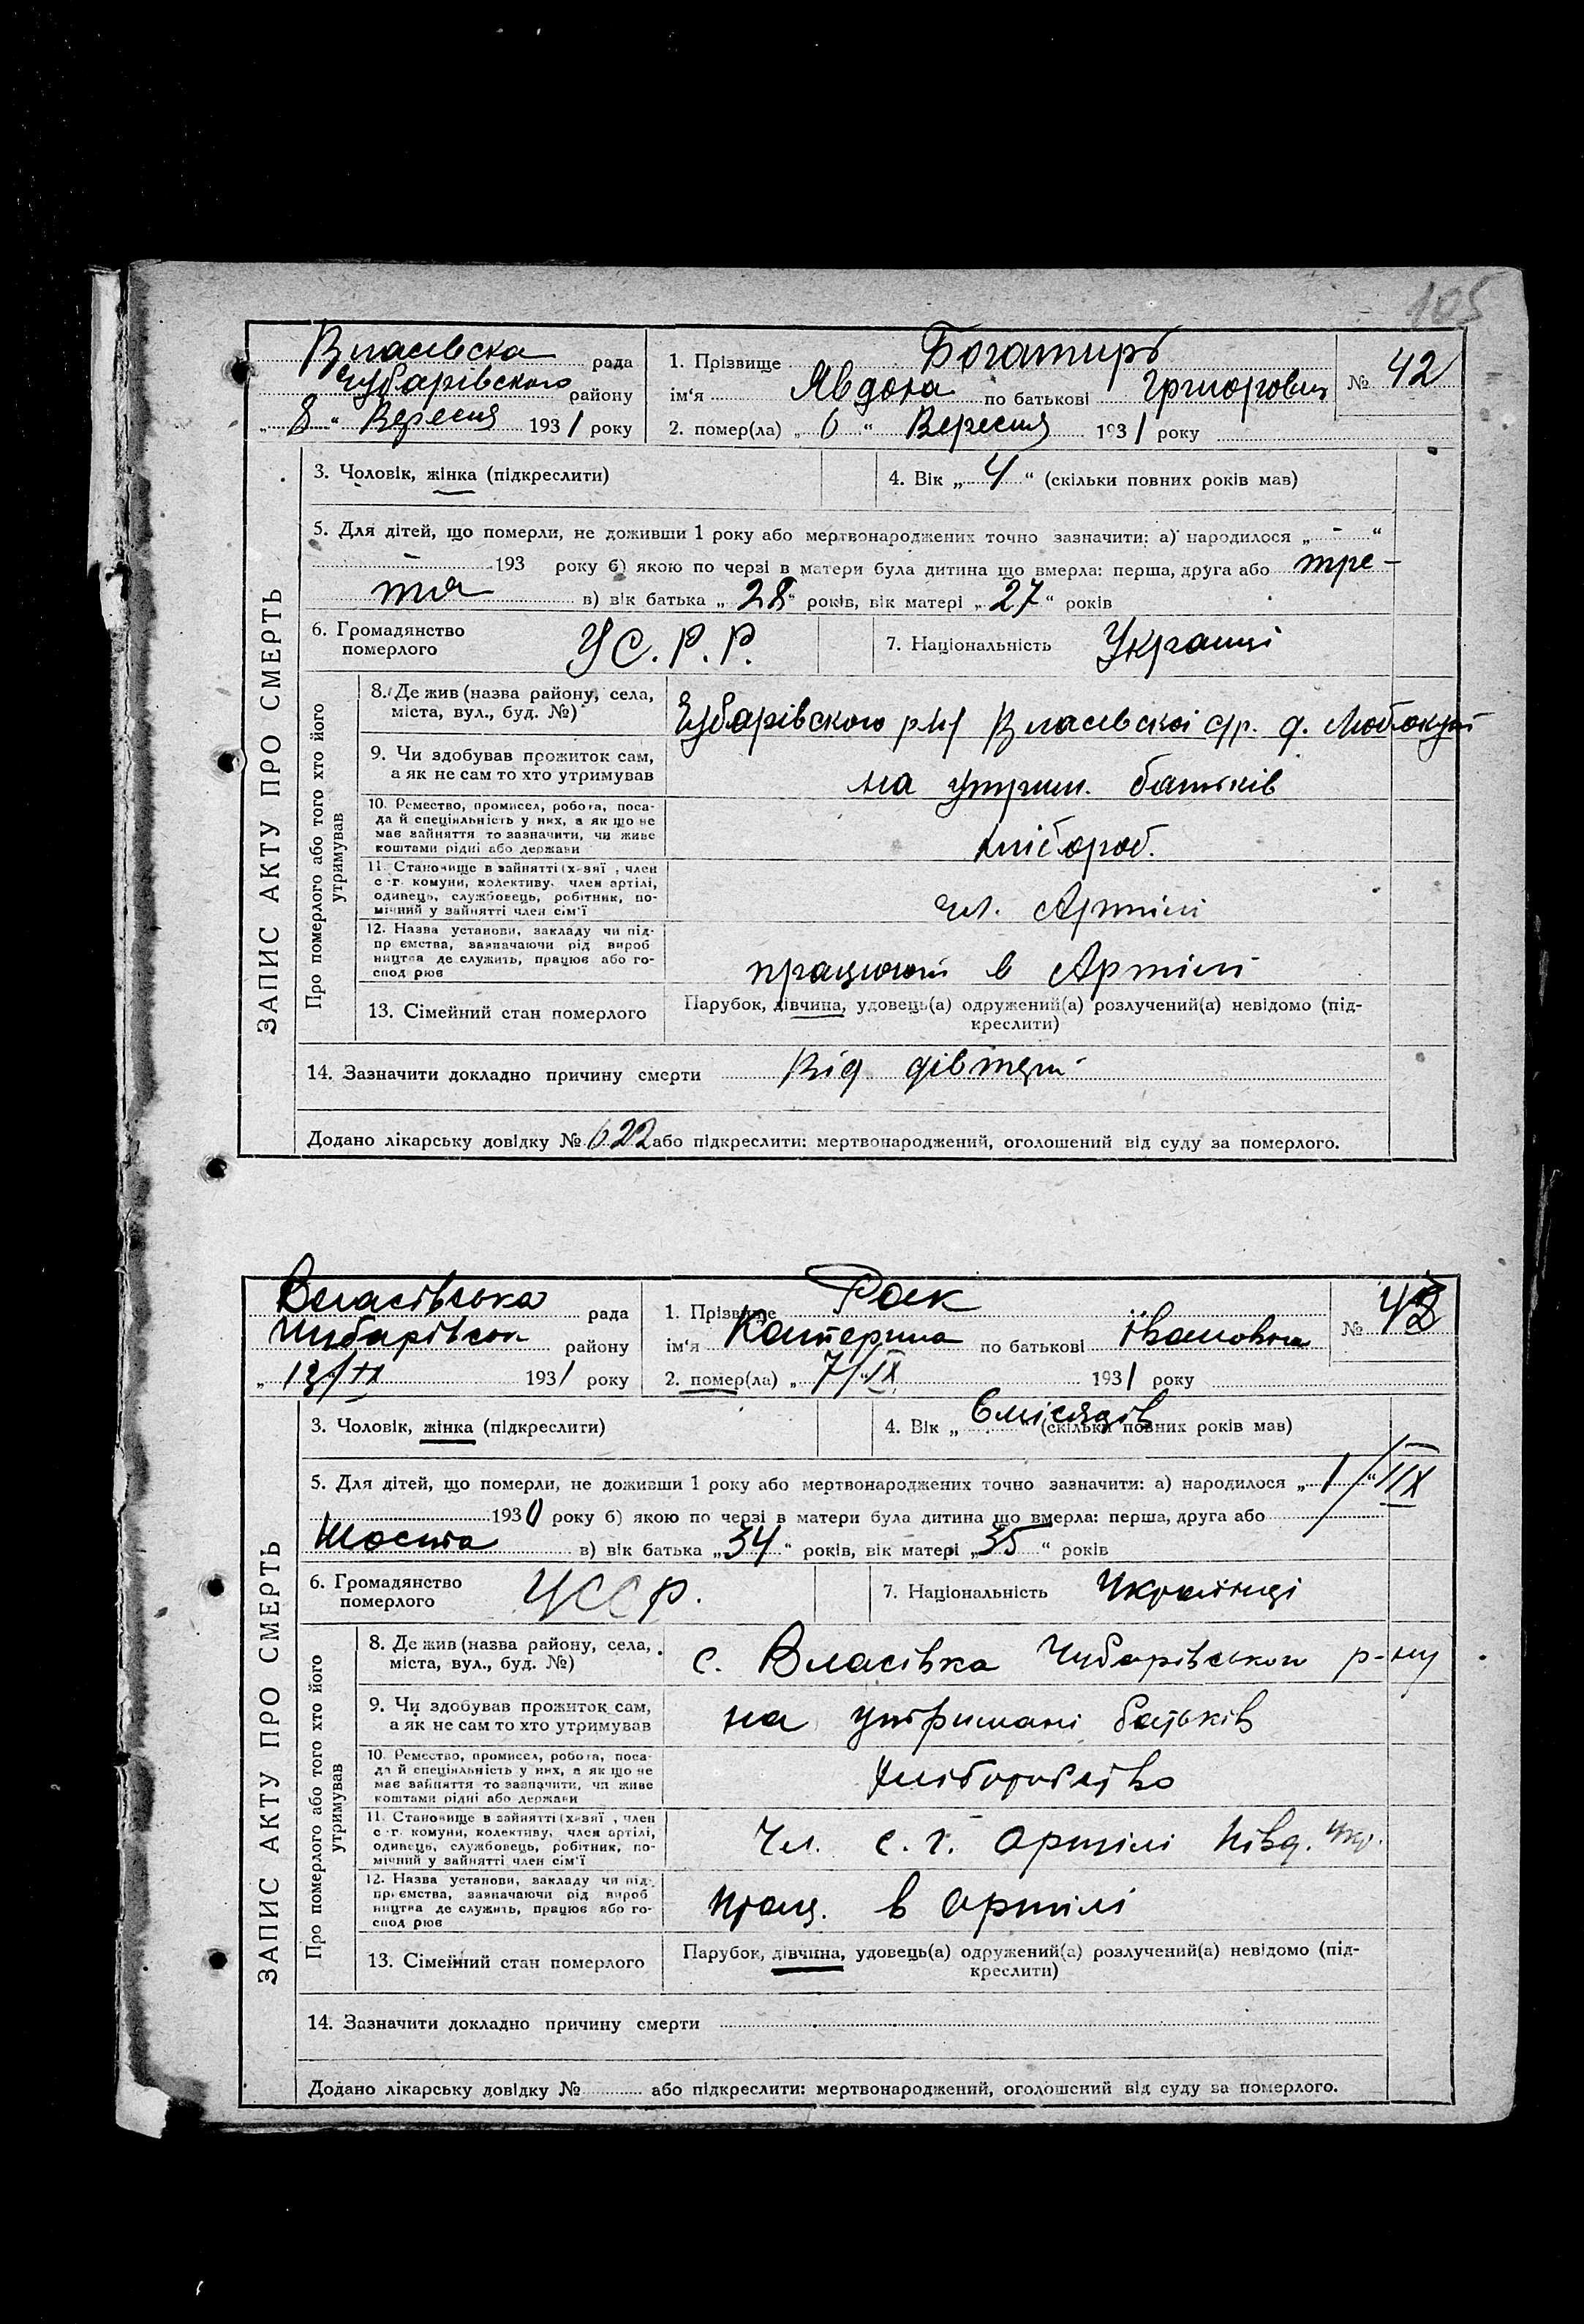 105
Власівска рада
Чубарівского району
„ 8 “ Вересня 1931 року
1. Прізвище Богатирь
ім‘я Явдоха по батькові Григоровна
№ 42
2. помер(ла) „ 6 “ Вересня 1931 року
ЗАПИС АКТУ ПРО СМЕРТЬ
3. Чоловік, жінка (підкреслити)
4. Вік „ 4 “ (скільки повних років мав)
5. Для дітей, що померли, не доживши 1 року або мертвонароджених точно зазначити: а) народилося „ - “
- 193 року б) якою по черзі в матери була дитина що вмерла: перша, друга або тре-
тя в) вік батька „ 28 “ років, вік матері „ 27 “ років
6. Громадянство
померлого
УС.Р.Р.
7. Національність Украінці
Про померлого або того хто його
утримував
8. Де жив (назва району, села,
міста, вул., буд. №)
Чубарівского р-ну Власівскоі с/р. д.
9. Чи здобував прожиток сам,
а як не сам то хто утримував
на утрим. батьків
10. Ремество, промисел, робота, поса-
да й спеціяльність у них, а як що не
має зайняття то зазначити, чи живе
коштами рідні або держави
хлібороб.
11. Становище в зайнятті (хазяї , член
с -г. комуни, колективу, член артілі,
одинець, службовець, робітник, по-
мічний у зайнятті член сім‘ї
чл. Артілі
12. Назва установи, закладу чи під-
пр ємства, зазначаючи рід вироб
ництва де служить, працює або го-
спод рює
працюють в Артілі
13. Сімейний стан померлого
Парубок, дівчина, удовець(а) одружений(а) розлучений(а) невідомо (під-
креслити)
14. Зазначити докладно причину смерти Від дівтеріі
Додано лікарську довідку № 622 або підкреслити: мертвонароджений, оголошений від суду за померлого.
Власівська рада
Чубарівськ району
„ 13/IX 1931 року
1. Прізвище Рак
ім‘я Катерина по батькові Івановна
№ 43
2. помер(ла) „ 7/“IX 1931 року
ЗАПИС АКТУ ПРО СМЕРТЬ
3. Чоловік, жінка (підкреслити)
4. Вік „ 6 місяців (скільки повних років мав)
5. Для дітей, що померли, не доживши 1 року або мертвонароджених точно зазначити: а) народилося „ 1/“
1930 року б) якою по черзі в матери була дитина що вмерла: перша, друга або
Шоста в) вік батька „ 34 “ років, вік матері „ 35 “ років
6. Громадянство
померлого
УССР.
7. Національність Українці
Про померлого або того хто його
утримував
8. Де жив (назва району, села,
міста, вул., буд. №)
с. Власівка Чубарівського р-ну
9. Чи здобував прожиток сам,
а як не сам то хто утримував
на утримані батьків
10. Ремество, промисел, робота, поса-
да й спеціяльність у них, а як що не
має зайняття то зазначити, чи живе
коштами рідні або держави
хліборобство
11. Становище в зайнятті (хазяї , член
с -г. комуни, колективу, член артілі,
одинець, службовець, робітник, по-
мічний у зайнятті член сім‘ї
Чл. с. г. артілі Півд. Укр.
12. Назва установи, закладу чи під-
пр ємства, зазначаючи рід вироб
ництва де служить, працює або го-
спод рює
прац. в артілі
13. Сімейний стан померлого
Парубок, дівчина, удовець(а) одружений(а) розлучений(а) невідомо (під-
креслити)
14. Зазначити докладно причину смерти
Додано лікарську довідку № або підкреслити: мертвонароджений, оголошений від суду за померлого.